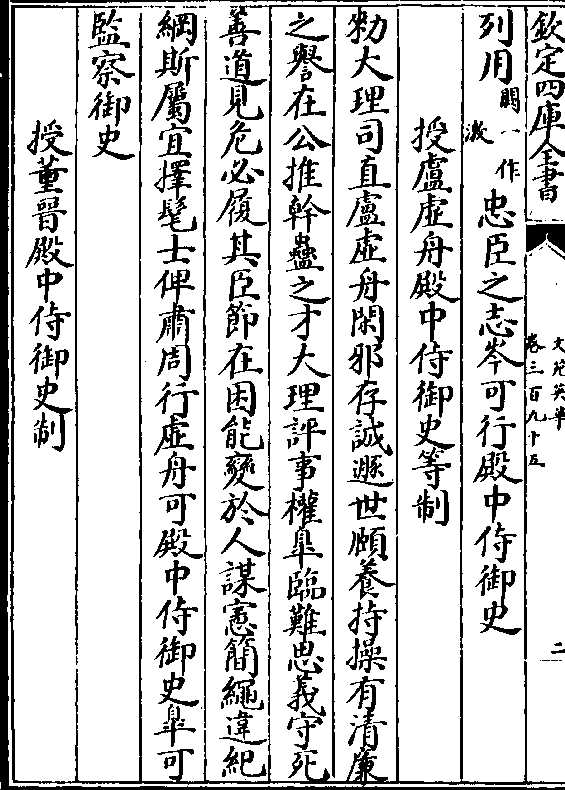 欽定四庫全書
文苑英華
卷三百九十五
二
列用闕一作激忠臣之志岑可行殿中侍御史
授盧虛舟殿中侍御史等制
勑大理司直盧虛舟閑邪存誠遯世頤養持操有清廉
之譽在公推幹蠱之才大理評事權臯臨難思義守死
善道見危必履其臣節在困能變於人謀憲簡繩違紀
綱斯屬宜擇髦士俾肅周行虛舟可殿中侍御史臯可
監察御史
授董晉殿中侍御史制